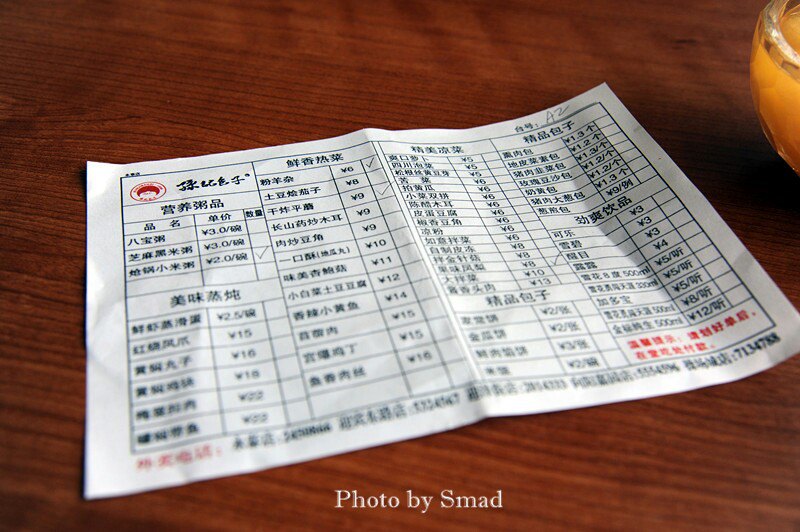 台号: A2
营养粥品
品 名 单价 数量
八宝粥 ¥3.0/碗
芝麻黑米粥 ¥3.0/碗
炝锅小米粥 ¥2.0/碗
美味蒸炖
鲜虾蒸滑蛋 ¥2.5/碗
红烧凤爪 ¥15
黄焖丸子 ¥16
黄焖鸡块 ¥18
¥22
¥22
鲜香热菜
粉羊杂 ¥6
土豆烩茄子 ¥8
干炸平蘑 ¥9
长山药炒木耳 ¥9
肉炒豆角 ¥9
一口酥(地瓜丸) ¥10
味美香鲍菇 ¥11
小白菜土豆豆腐 ¥12
香辣小黄鱼 ¥14
苜蓿肉 ¥15
宫爆鸡丁 ¥15
鱼香肉丝 ¥16
精美凉菜
爽口萝卜 ¥5
四川泡菜 ¥5
松根丝黄豆芽 ¥5
苦菜 ¥5
拍黄瓜 ¥6
小菜双拼 ¥6
陈醋木耳 ¥6
皮蛋豆腐 ¥6
椒香豆腐 ¥6
凉粉 ¥6
如意拌菜 ¥6
自制皮冻 ¥8
拌金针菇 ¥8
果味凤梨 ¥8
大拌菜 ¥10
酱香火肉 ¥13
精品包子
家常饼 ¥2/张
金瓜饼 ¥2/张
鲜肉馅饼 ¥3/张
米饭 ¥2/碗
精品包子
熏肉包 ¥1.3/个
地皮菜素包 ¥1.2/个
猪肉韭菜包 ¥1.3/个
玫瑰豆沙包 ¥1.2/个
奶黄包 ¥1.2/个
奶油大葱包 ¥1.2/个
葱煎包 ¥9/例
劲爽饮品
可乐 ¥3
雪碧 ¥3
醒目 ¥3
露露 ¥4
雪花8度 500ml ¥5/听
加多宝 ¥5/听
雪花勇闯天涯 330ml ¥5/听
雪花勇闯天涯 500ml ¥8/听
金装纯生 500ml ¥12/听
温馨提示: 请划好单后,
在堂吃处付款。
外卖电话:
Photo by Smad